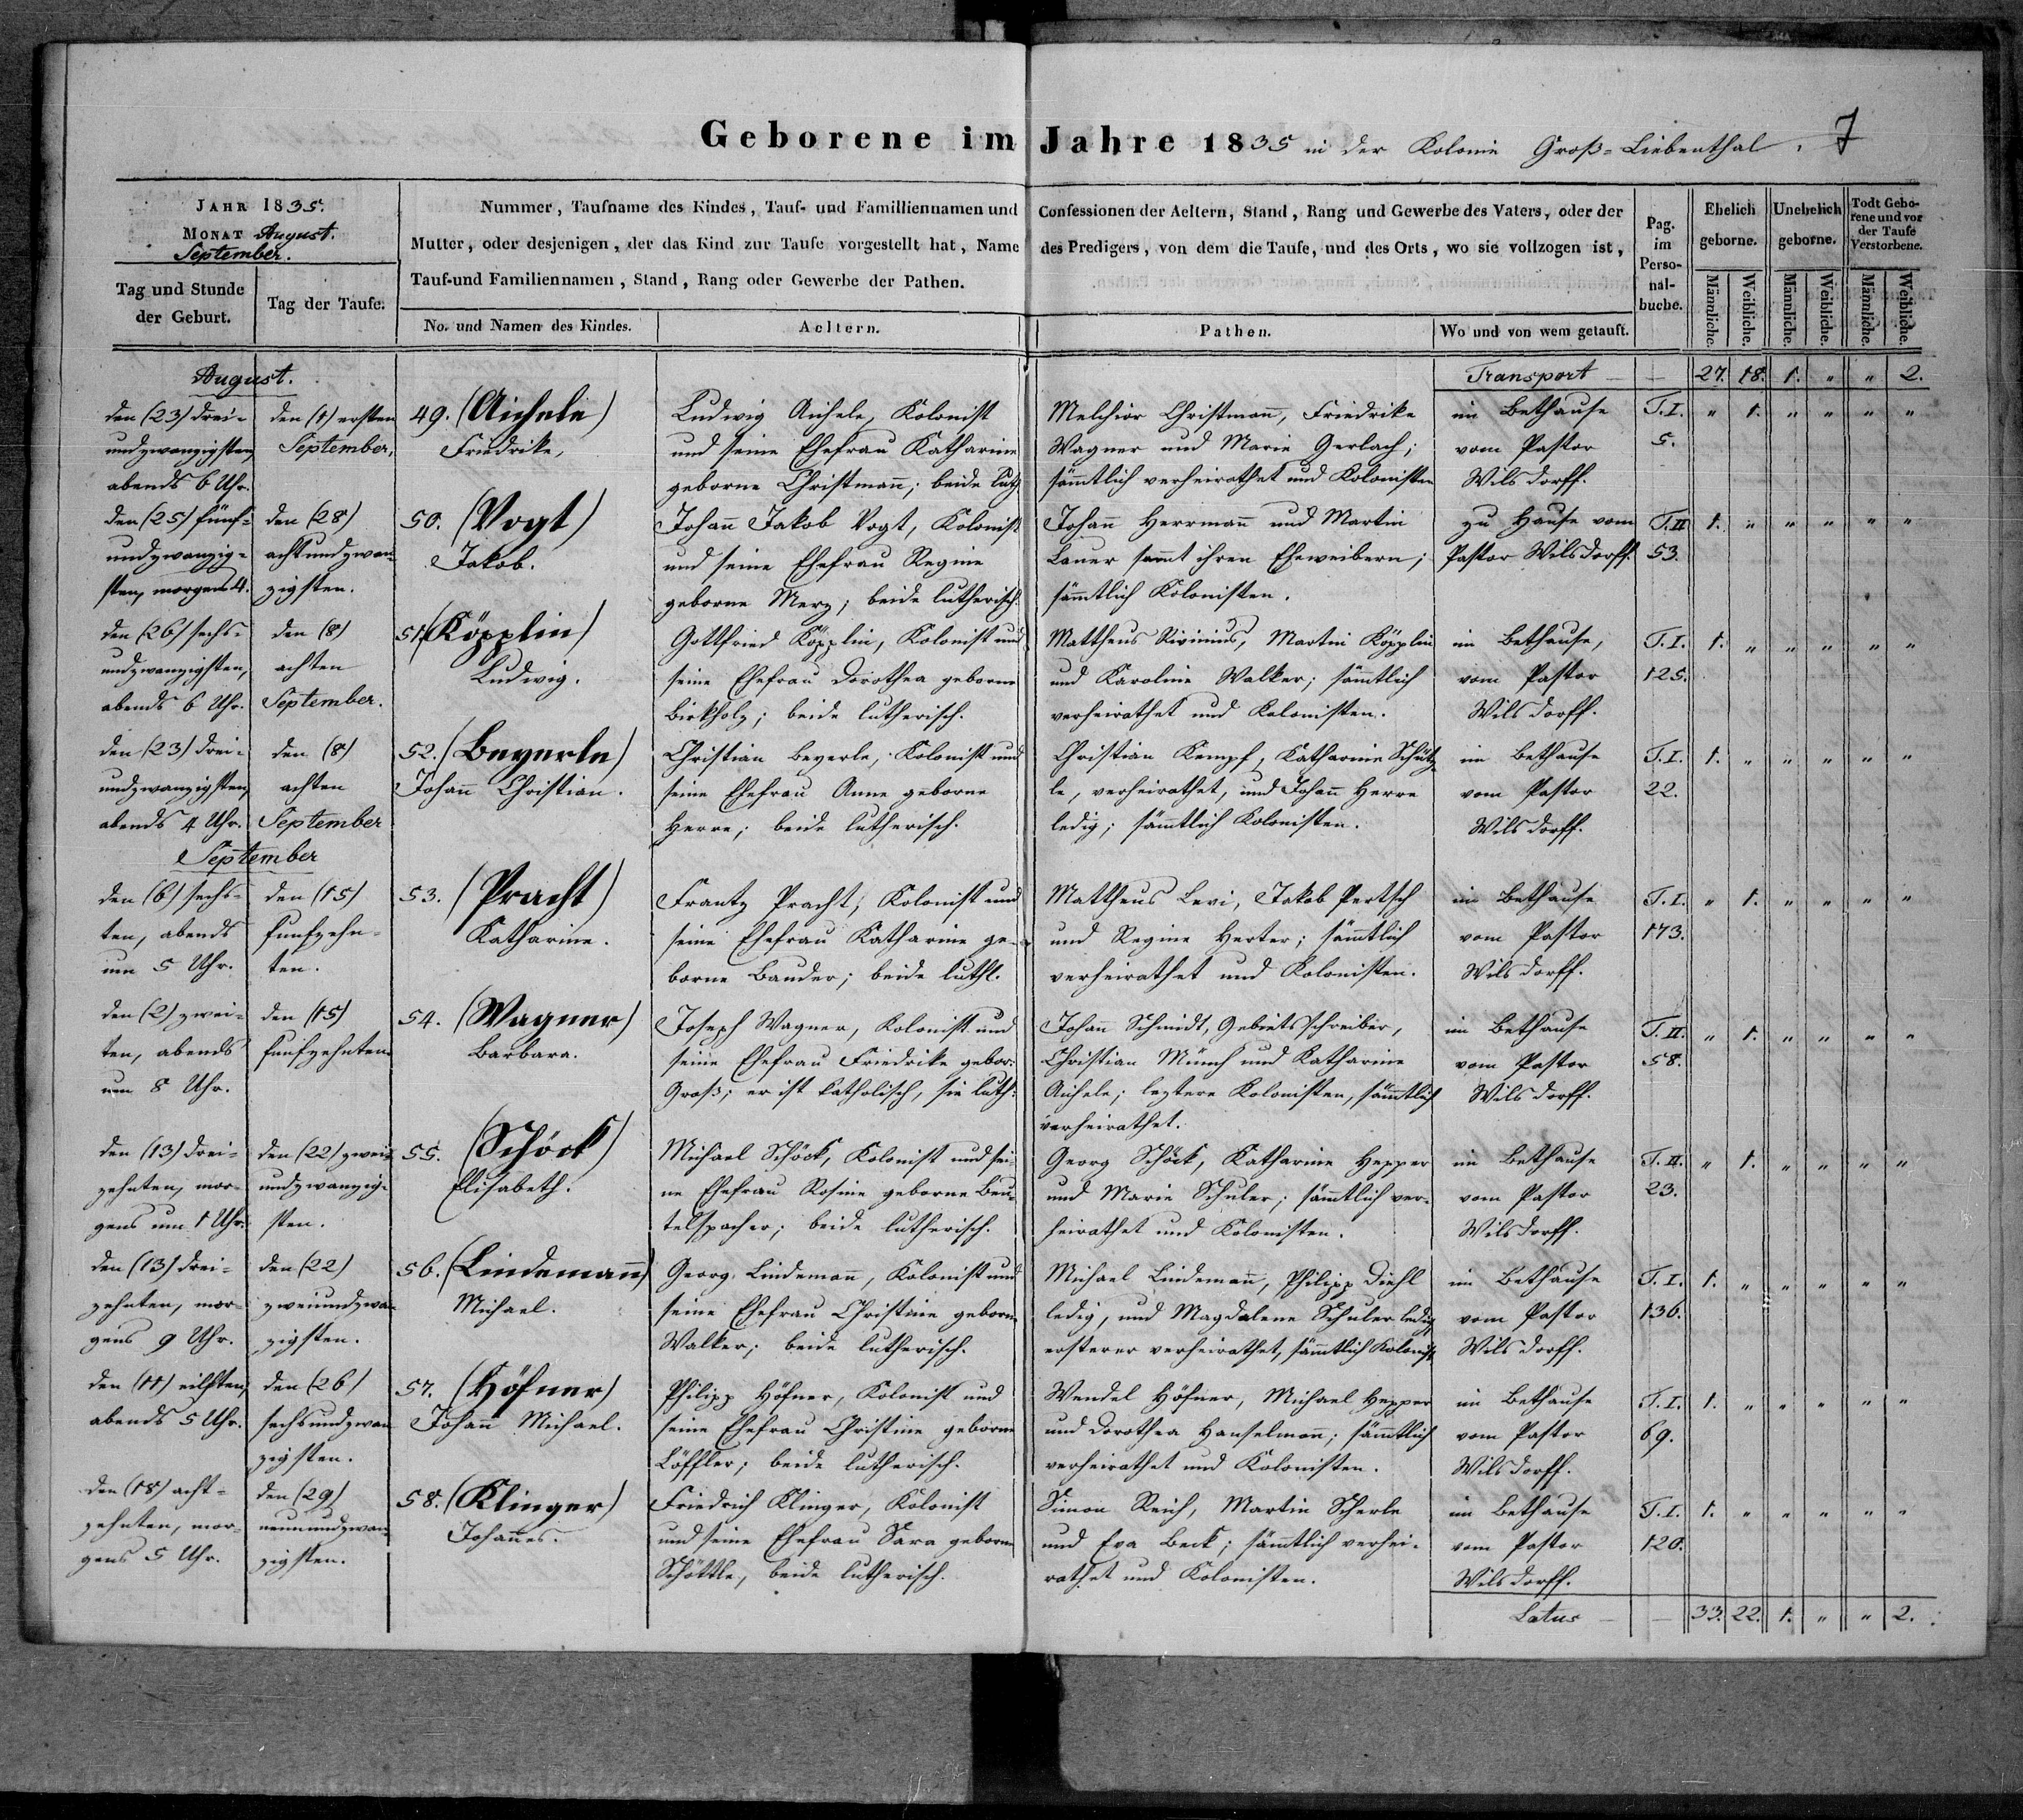 Geborene im Jahre 1835 in der Kolonie Groß-Liebenthal. 7
JAHR 1835.
MONAT August.
September.
Tag und Stunde
der Geburt.
Tag der Taufe.
Nummer, Taufname des Kindes, Tauf- und Familliennamen und Confessionen der Aeltern, Stand, Rang und Gewerbe des Vaters, oder der
Mutter, oder desjenigen, der das Kind zur Taufe vorgestellt hat, Name des Predigers, von dem die Taufe, und des Orts, wo sie vollzogen ist,
Tauf-und Familiennamen, Stand, Rang oder Gewerbe der Pathen.
No. und Namen des Kindes.
Aeltern.
Pathen.
Wo und von wem getauft.
Pag.
im
Perso-
nal-
buche.
Ehelich
geborne.
Unehelich
geborne.
Todt Gebo-
rene und vor
der Taufe
Verstorbene.
Männliche.
Weibliche.
Männliche.
Weibliche.
Männliche.
Weibliche.
Transport — — 27. 18. 1. " " 2.
August.
den (23) drei-
undzwanzigsten,
abends 6 Uhr.
den (1) ersten
September,
49. (Aichele)
Friedrike,
Ludwig Aichele, Kolonist
und seine Ehefrau Katharine
geborne Christmann; beide luth.
Melchior Christmann, Friedrike
Wagner und Marie Gerlach;
sämmtlich verheirathet und Kolonisten
im Bethause
vom Pastor
Wilsdorff.
T. I.
5.
" 1. " " " "
den (25) fünf-
undzwanzig-
sten, morgens 4.
den (28)
achtundzwan-
zigsten.
50. (Vogt)
Jakob.
Johann Jakob Vogt, Kolonist
und seine Ehefrau Regine
geborne Merz; beide lutherisch.
Johann Herrmann und Martin
Lauer sammt ihren Eheweibern;
sämmtlich Kolonisten.
zu Hause vom
Pastor Wilsdorff.
T. II
53.
1. " " " " "
den (26) sechs-
undzwanzigsten,
abends 6 Uhr.
den (8)
achten
September.
51. (Köpplin)
Ludwig.
Gottfried Köpplin, Kolonist und
seine Ehefrau Dorothea geborne
Birkholz; beide lutherisch.
Mattheus Rivinius, Martin Köpplin
und Karoline Walker; sämmtlich
verheirathet und Kolonisten.
im Bethause,
vom Pastor
Wilsdorff.
T. I.
125.
1. " " " " "
den (23) drei-
undzwanzigsten,
abends 4 Uhr.
den (8)
achten
September
52. (Beyerle)
Johann Christian.
Christian Beyerle, Kolonist und
seine Ehefrau Anne geborne
Herre; beide lutherisch.
Christian Kempf, Katharine Schütz-
le, verheirathet, und Johann Herre
ledig; sämmtlich Kolonisten.
im Bethause
vom Pastor
Wilsdorff.
T. I.
22.
1. " " " " "
September
den (6) sechs-
ten, abends
um 5 Uhr.
den (15)
funfzehn-
ten.
53. (Pracht)
Katharine.
Frantz Pracht, Kolonist und
seine Ehefrau Katharine ge-
borne Bauder; beide luthl.
Mattheus Levi, Jakob Pertsch
und Regine Herter; sämmtlich
verheirathet und Kolonisten.
im Bethause
vom Pastor
Wilsdorff.
T. I.
173.
" 1. " " " "
den (2) zwei-
ten, abends
um 8 Uhr.
den (15)
funfzehnten
54. (Wagner)
Barbara.
Joseph Wagner, Kolonist und
seine Ehefrau Friedrike gebor:
Groß; er ist katholisch, sie luth:
Johann Schmidt, Gebietsschreiber,
Christian Münch und Katharine
Aichele; leztere Kolonisten, sämmtlich
verheirathet.
im Bethause
vom Pastor
Wilsdorff.
T. II.
58.
" 1. " " " "
den (13) drei-
zehnten, mor-
gens um 1 Uhr.
den (22) zwei-
undzwanzig-
sten.
55. (Schöck)
Elisabeth.
Michael Schöck, Kolonist und sei-
ne Ehefrau Rosine geborne Beu-
telspacher; beide lutherisch.
Georg Schöck, Katharine Hepper
und Marie Schuler; sämmtlich ver-
heirathet und Kolonisten.
im Bethause
vom Pastor
Wilsdorff.
T. II.
23.
" 1. " " " "
den (13) drei-
zehnten, mor-
gens 9 Uhr.
den (22)
zweiundzwan-
zigsten.
56. (Lindemann)
Michael.
Georg Lindemann, Kolonist und
seine Ehefrau Christine geborne
Walker; beide lutherisch.
Michael Lindemann, Philipp Diehl
ledig, und Magdalene Schuler ledig
ersterer verheirathet, sämmtlich Kolonist.
im Bethause
vom Pastor
Wilsdorff.
T. I.
136.
1. " " " " "
den (11) eilften,
abends 5 Uhr.
den (26)
sechsundzwan-
zigsten.
57. (Höfner)
Johann Michael.
Philipp Höfner, Kolonist und
seine Ehefrau Christine geborne
Löffler; beide lutherisch.
Wendel Höfner, Michael Hepper
und Dorothea Hanselmann; sämmtlich
verheirathet und Kolonisten.
im Bethause
vom Pastor
Wilsdorff.
T. I.
69.
1. " " " " "
den (18) acht-
zehnten, mor-
gens 5 Uhr.
den (29)
neunundzwan-
zigsten.
58. (Klinger)
Johannes.
Friedrich Klinger, Kolonist
und seine Ehefrau Sara geborne
Schöttle, beide lutherisch.
Simon Reich, Martin Scherle
und Eva Beck; sämmtlich verhei-
rathet und Kolonisten.
im Bethause
vom Pastor
Wilsdorff.
T. I.
120.
1. " " " " "
Latus — — 33. 22. 1. " " 2.